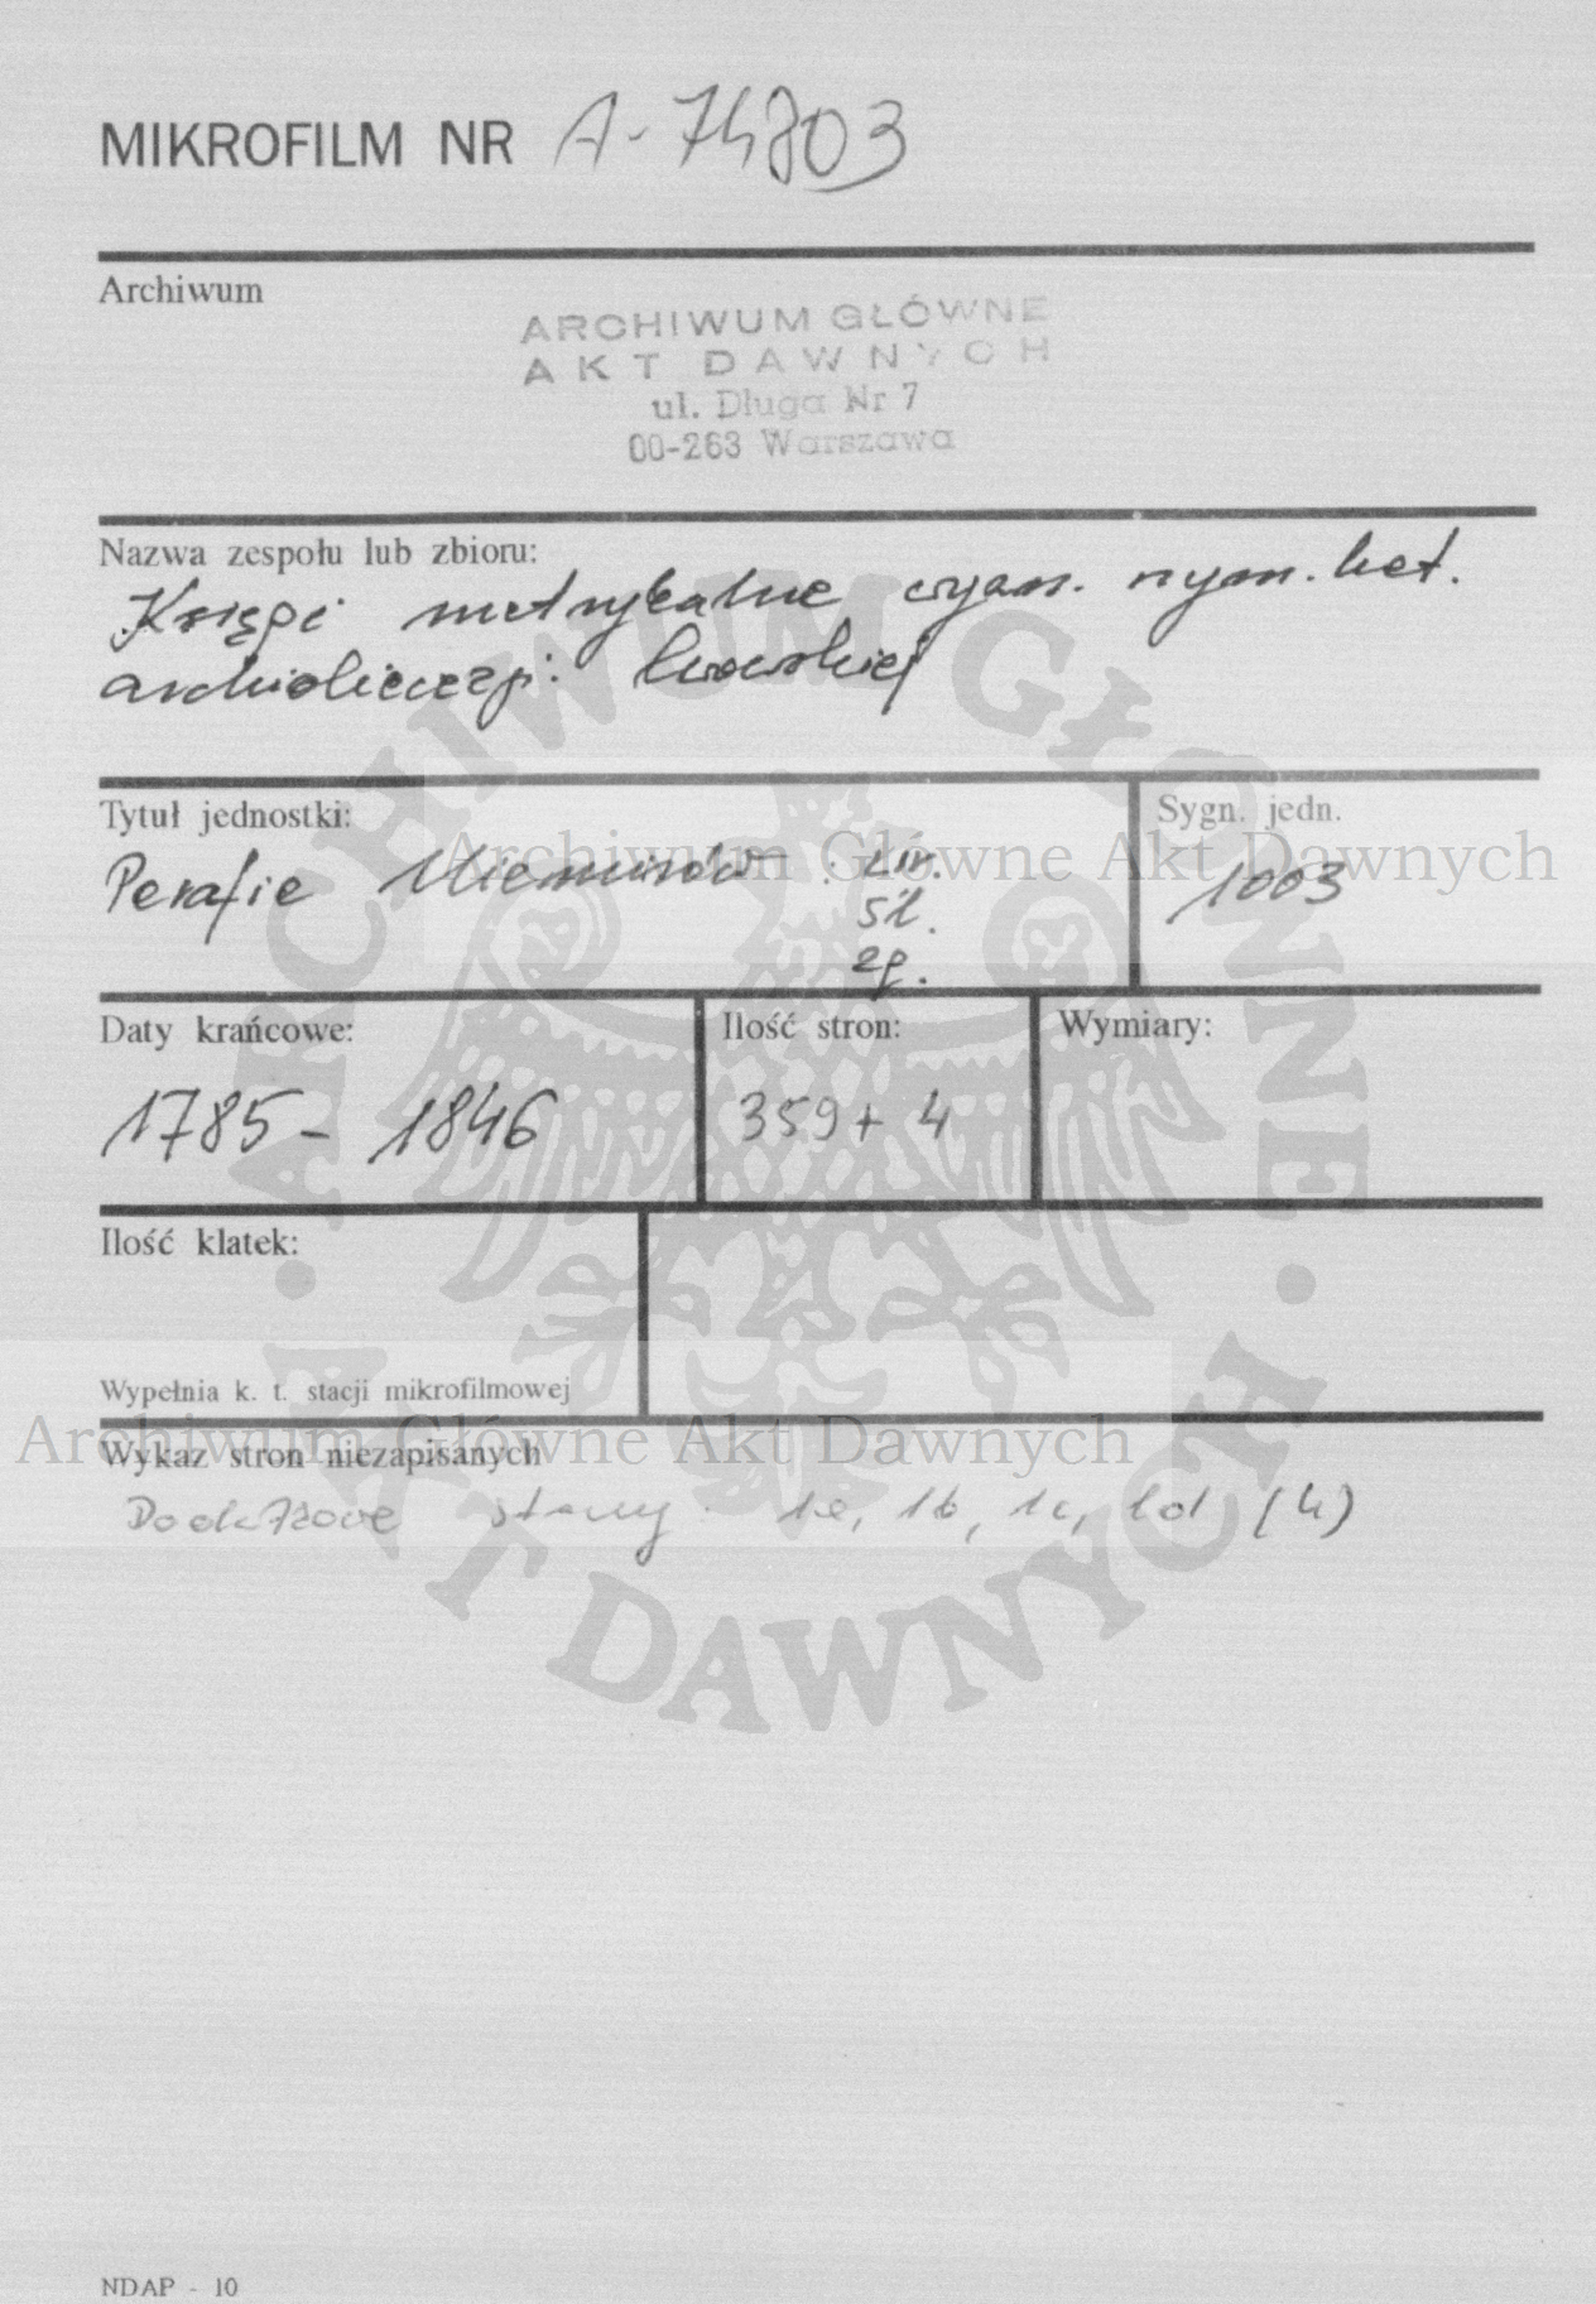 MIKROFILM NR A-74803
Archiwum
ARCHIWUM GŁÓWNE
AKT DAWNYCH
ul. Długa Nr 7
00-263 Warszawa
Nazwa zespołu lub zbioru:
Księgi metrykalne wyzn. rzym. kat.
archidiecezji lwowskiej
Tytuł jednostki:
Parafia Niemirów: ur.
śl.
zg.
Sygn. jedn.
1003
Archiwum Główne Akt Dawnych
Daty krańcowe:
1785 - 1846
Ilość stron:
359 + 4
Wymiary:
Ilość klatek:
Wypełnia k. t. stacji mikrofilmowej
Archiwum Główne Akt Dawnych
Wykaz stron niezapisanych
Dodatkowe strony: 1a, 1b, 1c, 1d (4)
ARCHIWUM GŁÓWNE
AKT DAWNYCH
NDAP - 10